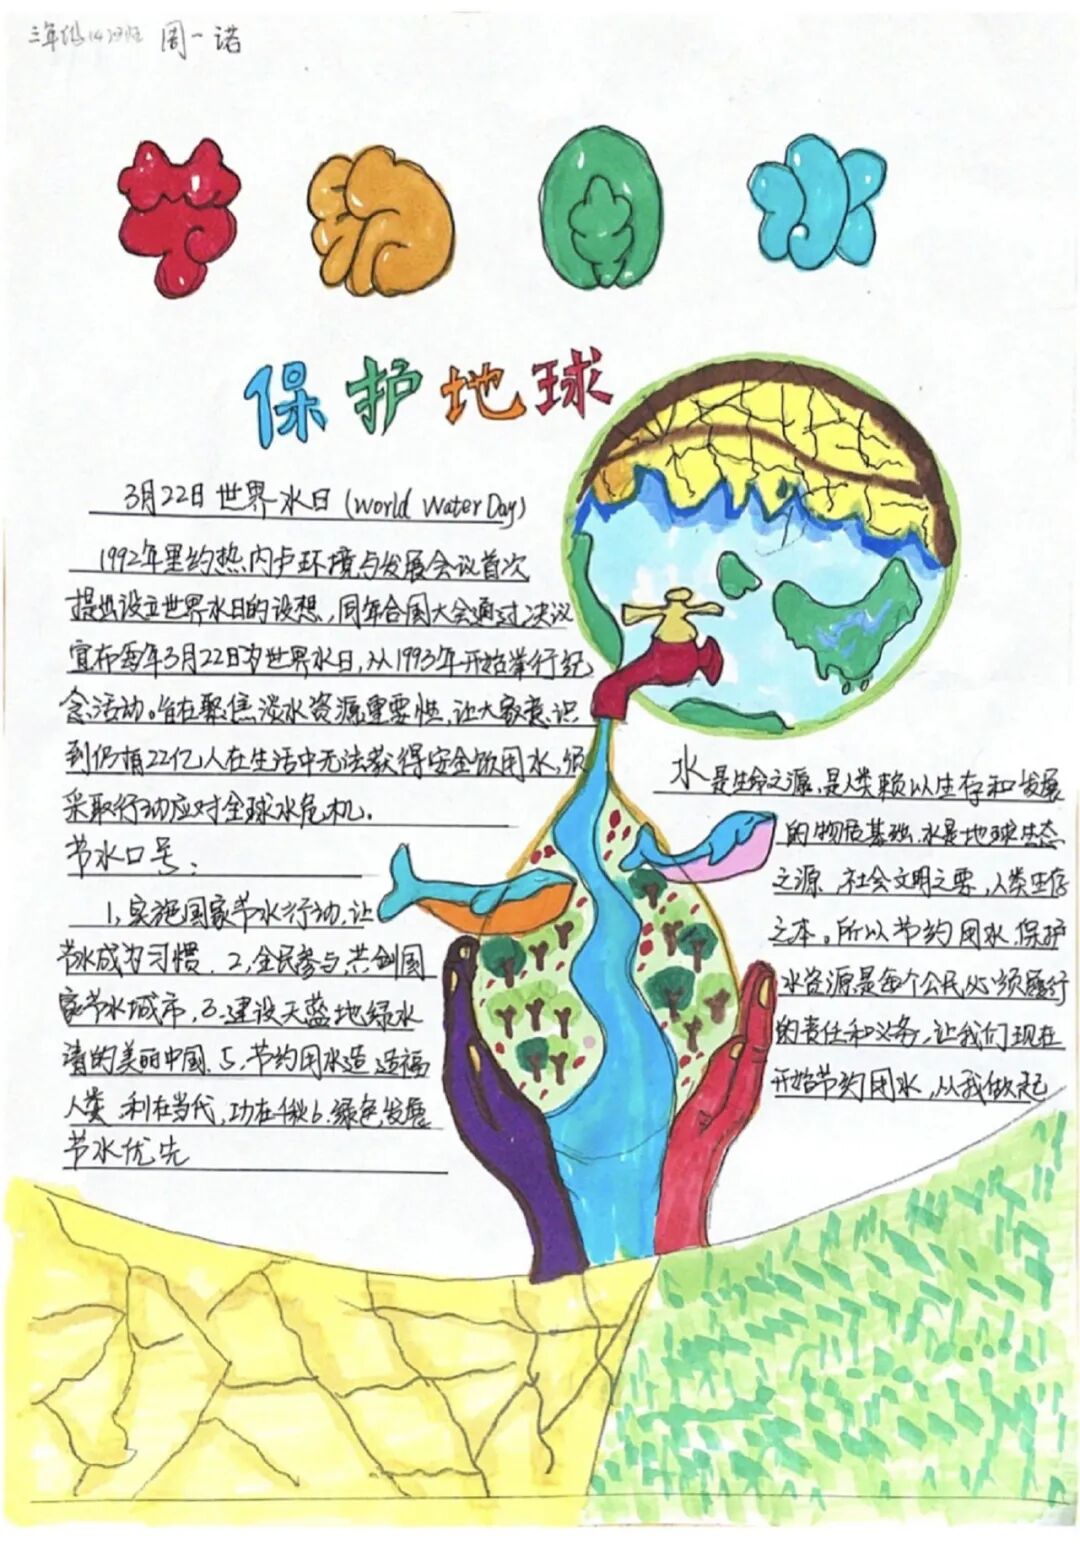 三年级(4)班 周一诺
节约用水
保护地球
3月22日世界水日(World Water Day)
1992年里约热内卢环境与发展会议首次
提出设立世界水日的设想,同年合国大会通过决议
宣布每年3月22日为世界水日,从1993年开始举行纪
念活动。旨在聚焦淡水资源重要性,让大家意识
到仍有22亿人在生活中无法获得安全饮用水,须
采取行动应对全球水危机.
节水口号:
1,实施国家节水行动,让
节水成为习惯.2,全民参与,共创国
家节水城市,3.建设天蓝地绿水
清的美丽中国.5,节约用水造 造福
人类 利在当代,功在千秋6.绿色发展
节水优先
水是生命之源,是人类赖以生存和发展
的物质基础.水是地球生态
之源 社会文明之要,人类生存
之本。所以节约用水,保护
水资源是每个公民必须履行
的责任和义务,让我们现在
开始节约用水,从我做起